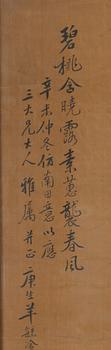 碧桃含曉露素蕙襲春風
辛未仲冬仿南田意以應
三大兄大人雅屬并正庚生羊毓